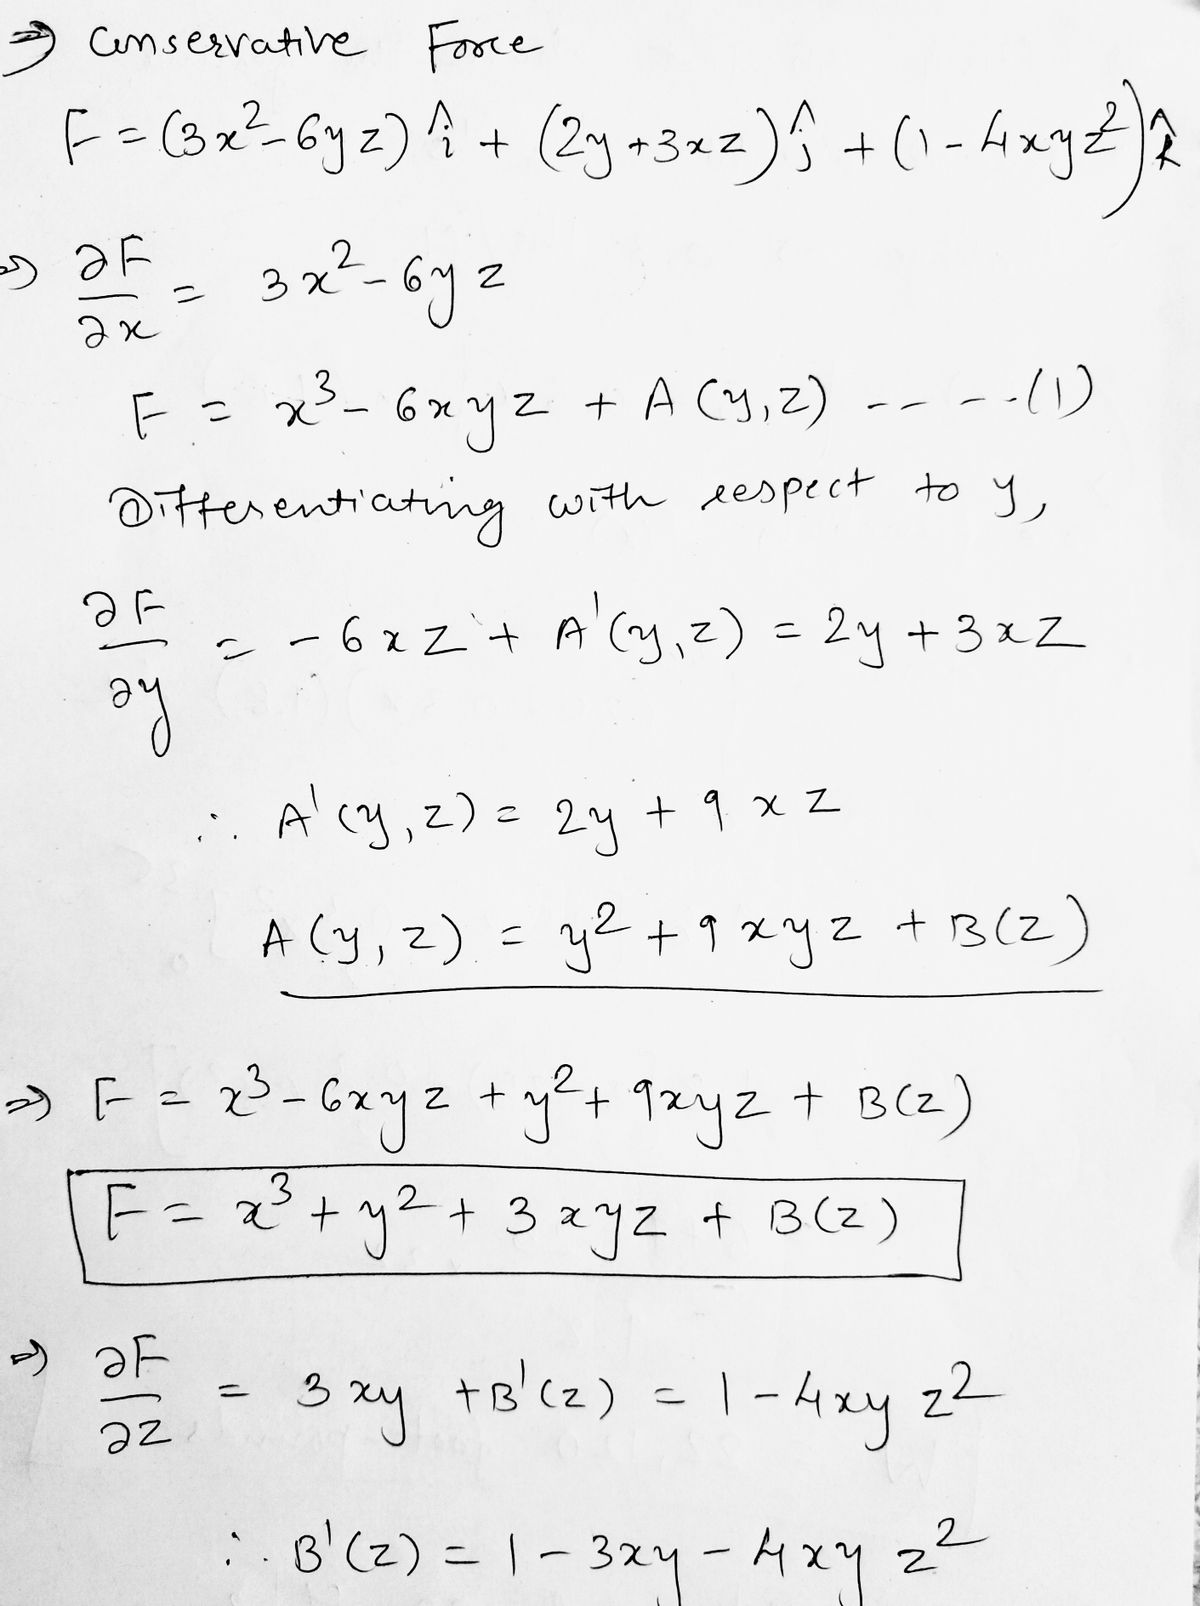 ⇒ Conservative Force
F = (3x² - 6yz) î + (2y + 3xz) ĵ + (1 - 4xyz²) k̂
⇒ ∂F/∂x = 3x² - 6yz
F = x³ - 6xyz + A(y,z) -----(1)
Differentiating with respect to y,
∂F/∂y = -6xz + A'(y,z) = 2y + 3xz
∴ A'(y,z) = 2y + 9xz
A(y,z) = y² + 9xyz + B(z)
⇒ F = x³ - 6xyz + y² + 9xyz + B(z)
F = x³ + y² + 3xyz + B(z)
⇒ ∂F/∂z = 3xy + B'(z) = 1 - 4xyz²
∴ B'(z) = 1 - 3xy - 4xyz²